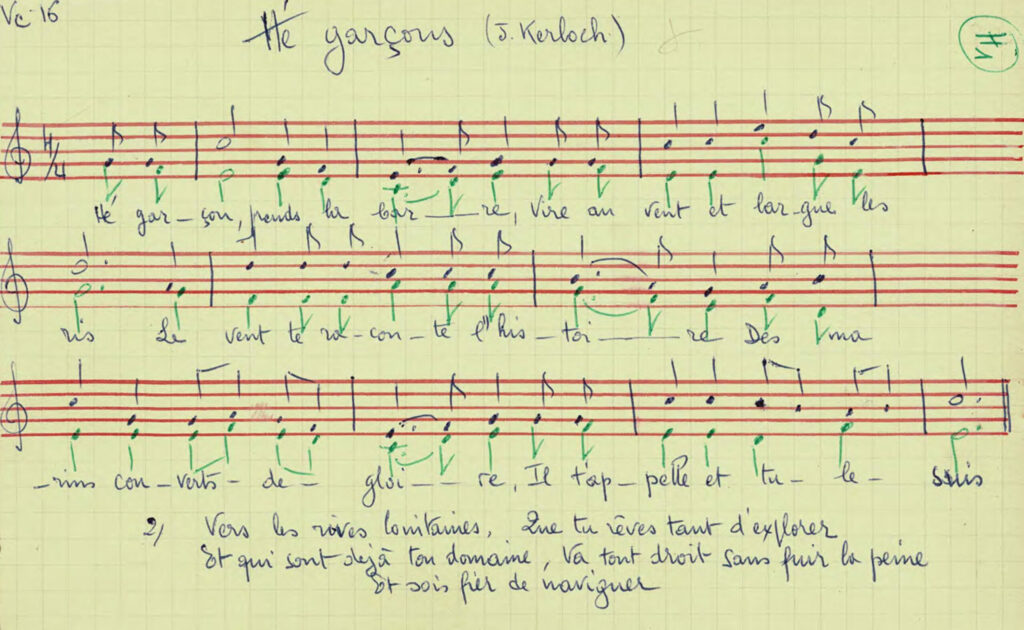 Vc 16
Hé garçons (J. Kerloch)
VH
4/4
Hé gar_çon, prends la bar___re, Vire au vent et lar_gue les
ris Le vent te ra_con_te l'his_toi____re Des ma
_rins con_verts_ de_ gloi___re, Il t'ap_pelle et tu_ le_ suis
2) Vers les rives lointaines, Que tu rêves tant d'explorer
Et qui sont dejà ton domaine, Va tout droit sans fuir la peine
Et sois fier de naviguer